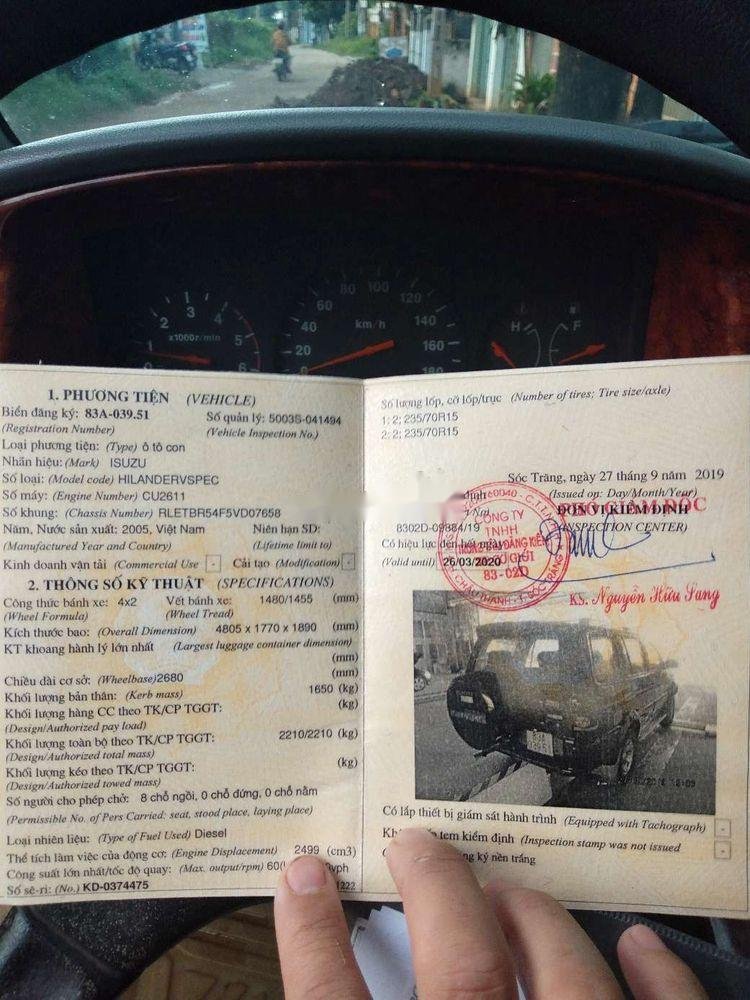 80 100
60 120
40 km/h 140
20 160
180
1 2 3 4 5 6
x1000r/min
H F
1. PHƯƠNG TIỆN (VEHICLE)
Biển đăng ký: 83A-039.51 Số quản lý: 5003S-041494
(Registration Number) (Vehicle Inspection No.)
Loại phương tiện: (Type) ô tô con
Nhãn hiệu: (Mark) ISUZU
Số loại: (Model code) HILANDERVSPEC
Số máy: (Engine Number) CU2611
Số khung: (Chassis Number) RLETBR54F5VD07658
Năm, Nước sản xuất: 2005, Việt Nam Niên hạn SD:
(Manufactured Year and Country) (Lifetime limit to)
Kinh doanh vận tải (Commercial Use) - Cải tạo (Modification) -
2. THÔNG SỐ KỸ THUẬT (SPECIFICATIONS)
Công thức bánh xe: 4x2 Vết bánh xe: 1480/1455 (mm)
(Wheel Formula) (Wheel Tread)
Kích thước bao: (Overall Dimension) 4805 x 1770 x 1890 (mm)
KT khoang hành lý lớn nhất (Largest luggage container dimension)
(mm)
Chiều dài cơ sở: (Wheelbase) 2680 (mm)
Khối lượng bản thân: (Kerb mass) 1650 (kg)
Khối lượng hàng CC theo TK/CP TGGT: (kg)
(Design/Authorized pay load)
Khối lượng toàn bộ theo TK/CP TGGT: 2210/2210 (kg)
(Design/Authorized total mass)
Khối lượng kéo theo TK/CP TGGT: (kg)
(Design/Authorized towed mass)
Số người cho phép chở: 8 chỗ ngồi, 0 chỗ đứng, 0 chỗ nằm
(Permissible No. of Pers Carried: seat, stood place, laying place)
Loại nhiên liệu: (Type of Fuel Used) Diesel
Thể tích làm việc của động cơ: (Engine Displacement) 2499 (cm3)
Công suất lớn nhất/tốc độ quay: (Max. output/rpm) 60( vph
Số sê-ri: (No.) KD-0374475 1222
Số lượng lốp, cỡ lốp/trục (Number of tires; Tire size/axle)
1: 2; 235/70R15
2: 2; 235/70R15
Sóc Trăng, ngày 27 tháng 9 năm 2019
(Issued on: Day/Month/Year)
ĐƠN VỊ KIỂM ĐỊNH
GIÁM ĐỐC
8302D-09884/19 (INSPECTION CENTER)
Có hiệu lực đến hết ngày
(Valid until) 26/03/2020
CÔNG TY
TNHH
ĐĂNG KIỂM
83-02D
CHÂU THÀNH - T. SÓC TRĂNG
KS. Nguyễn Hữu Sang
Có lắp thiết bị giám sát hành trình (Equipped with Tachograph) -
tem kiểm định (Inspection stamp was not issued -
ký nền trắng